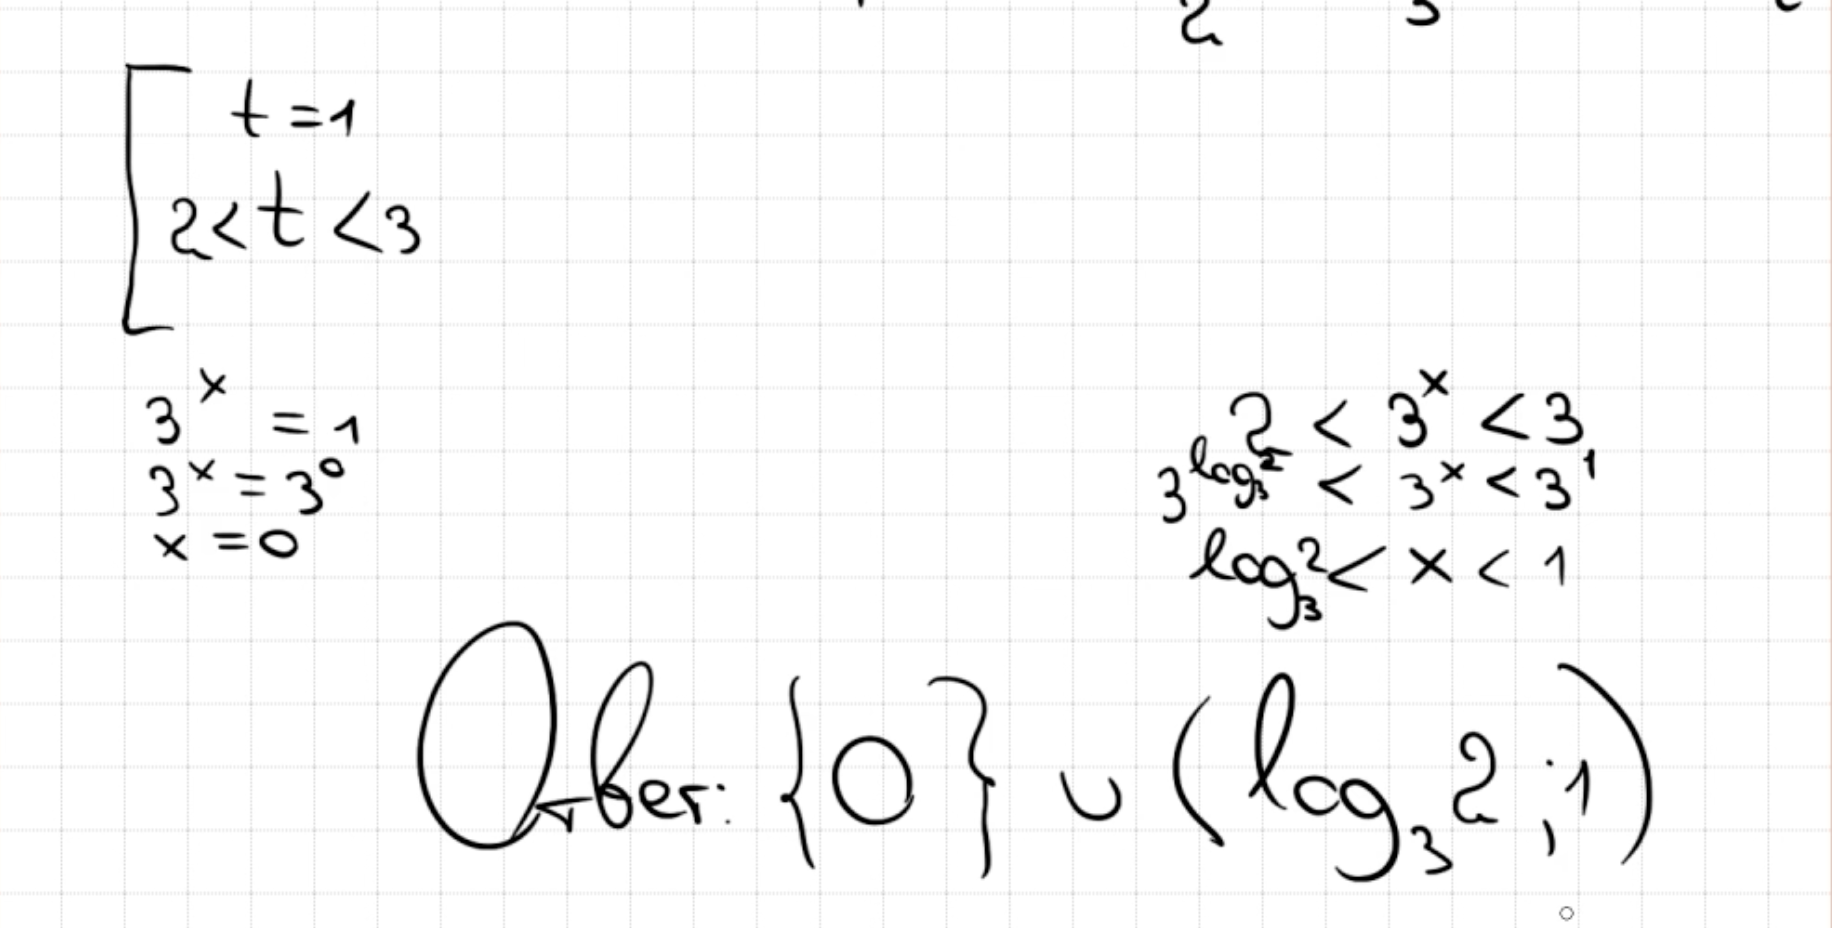 2 3
t = 1
2 < t < 3
3^x = 1
3^x = 3^0
x = 0
2 < 3^x < 3
3^{log_3 2} < 3^x < 3^1
log_3 2 < x < 1
Ответ: {0} ∪ (log_3 2; 1)